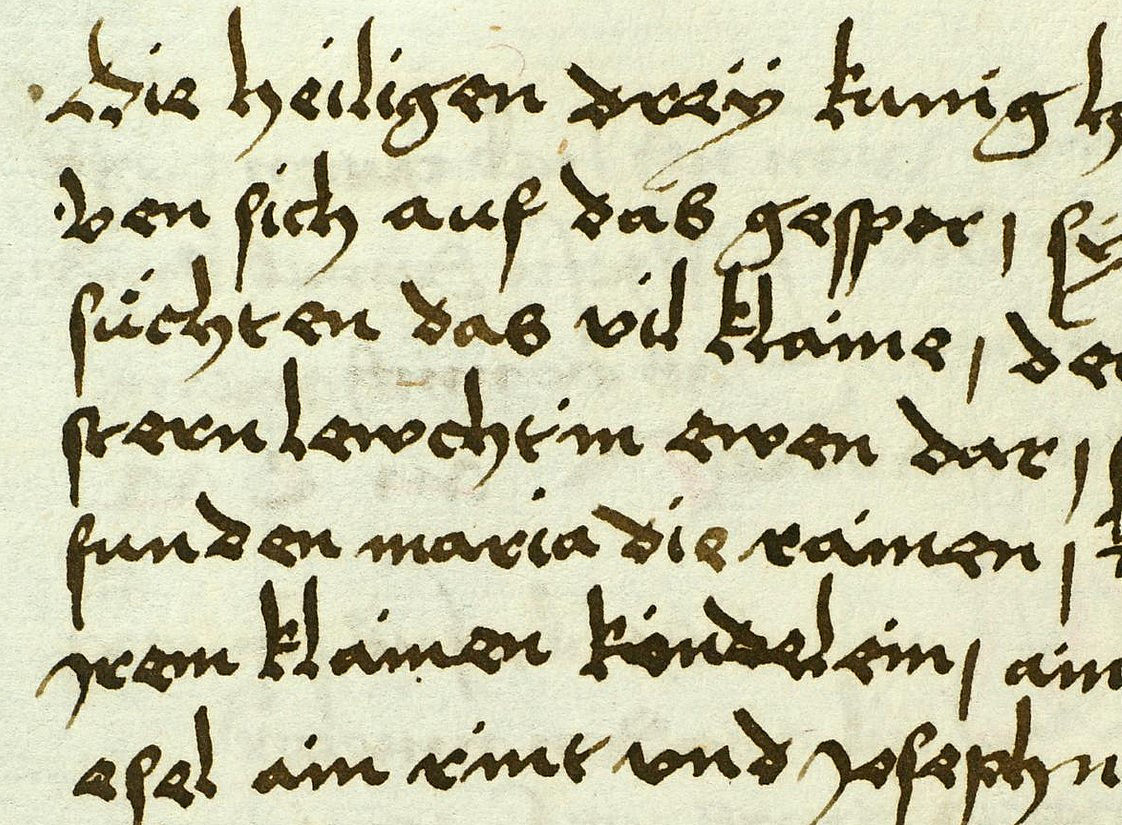 Die heiligen dreÿ kunig h
ben sich auf das gespor / sy
suͤchten das vil klaine / der
stern lewcht in ewen dar /
funden maria die rainen /
Jrem klainen kindelein / ain
esel ain rint vnd Joseph n